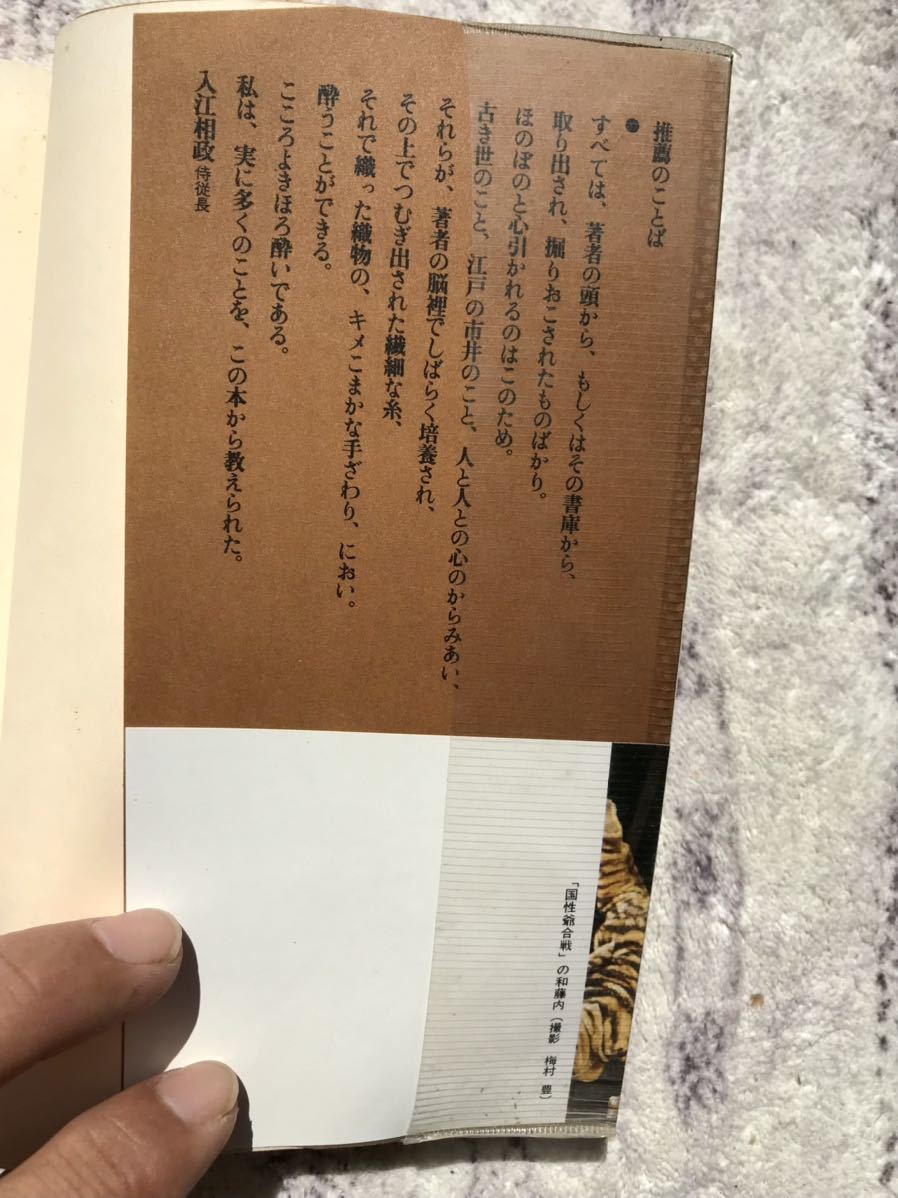 推薦のことば
●
すべては、著者の頭から、もしくはその書庫から、
取り出され、掘りおこされたものばかり。
ほのぼのと心引かれるのはこのため。
古き世のこと、江戸の市井のこと、人と人との心のからみあい、
それらが、著者の脳裡でしばらく培養され、
その上でつむぎ出された繊細な糸、
それで織った織物の、キメこまかな手ざわり、におい。
酔うことができる。
こころよきほろ酔いである。
私は、実に多くのことを、この本から教えられた。
入江相政 侍従長
「国性爺合戦」の和藤内(撮影 梅村 豊)